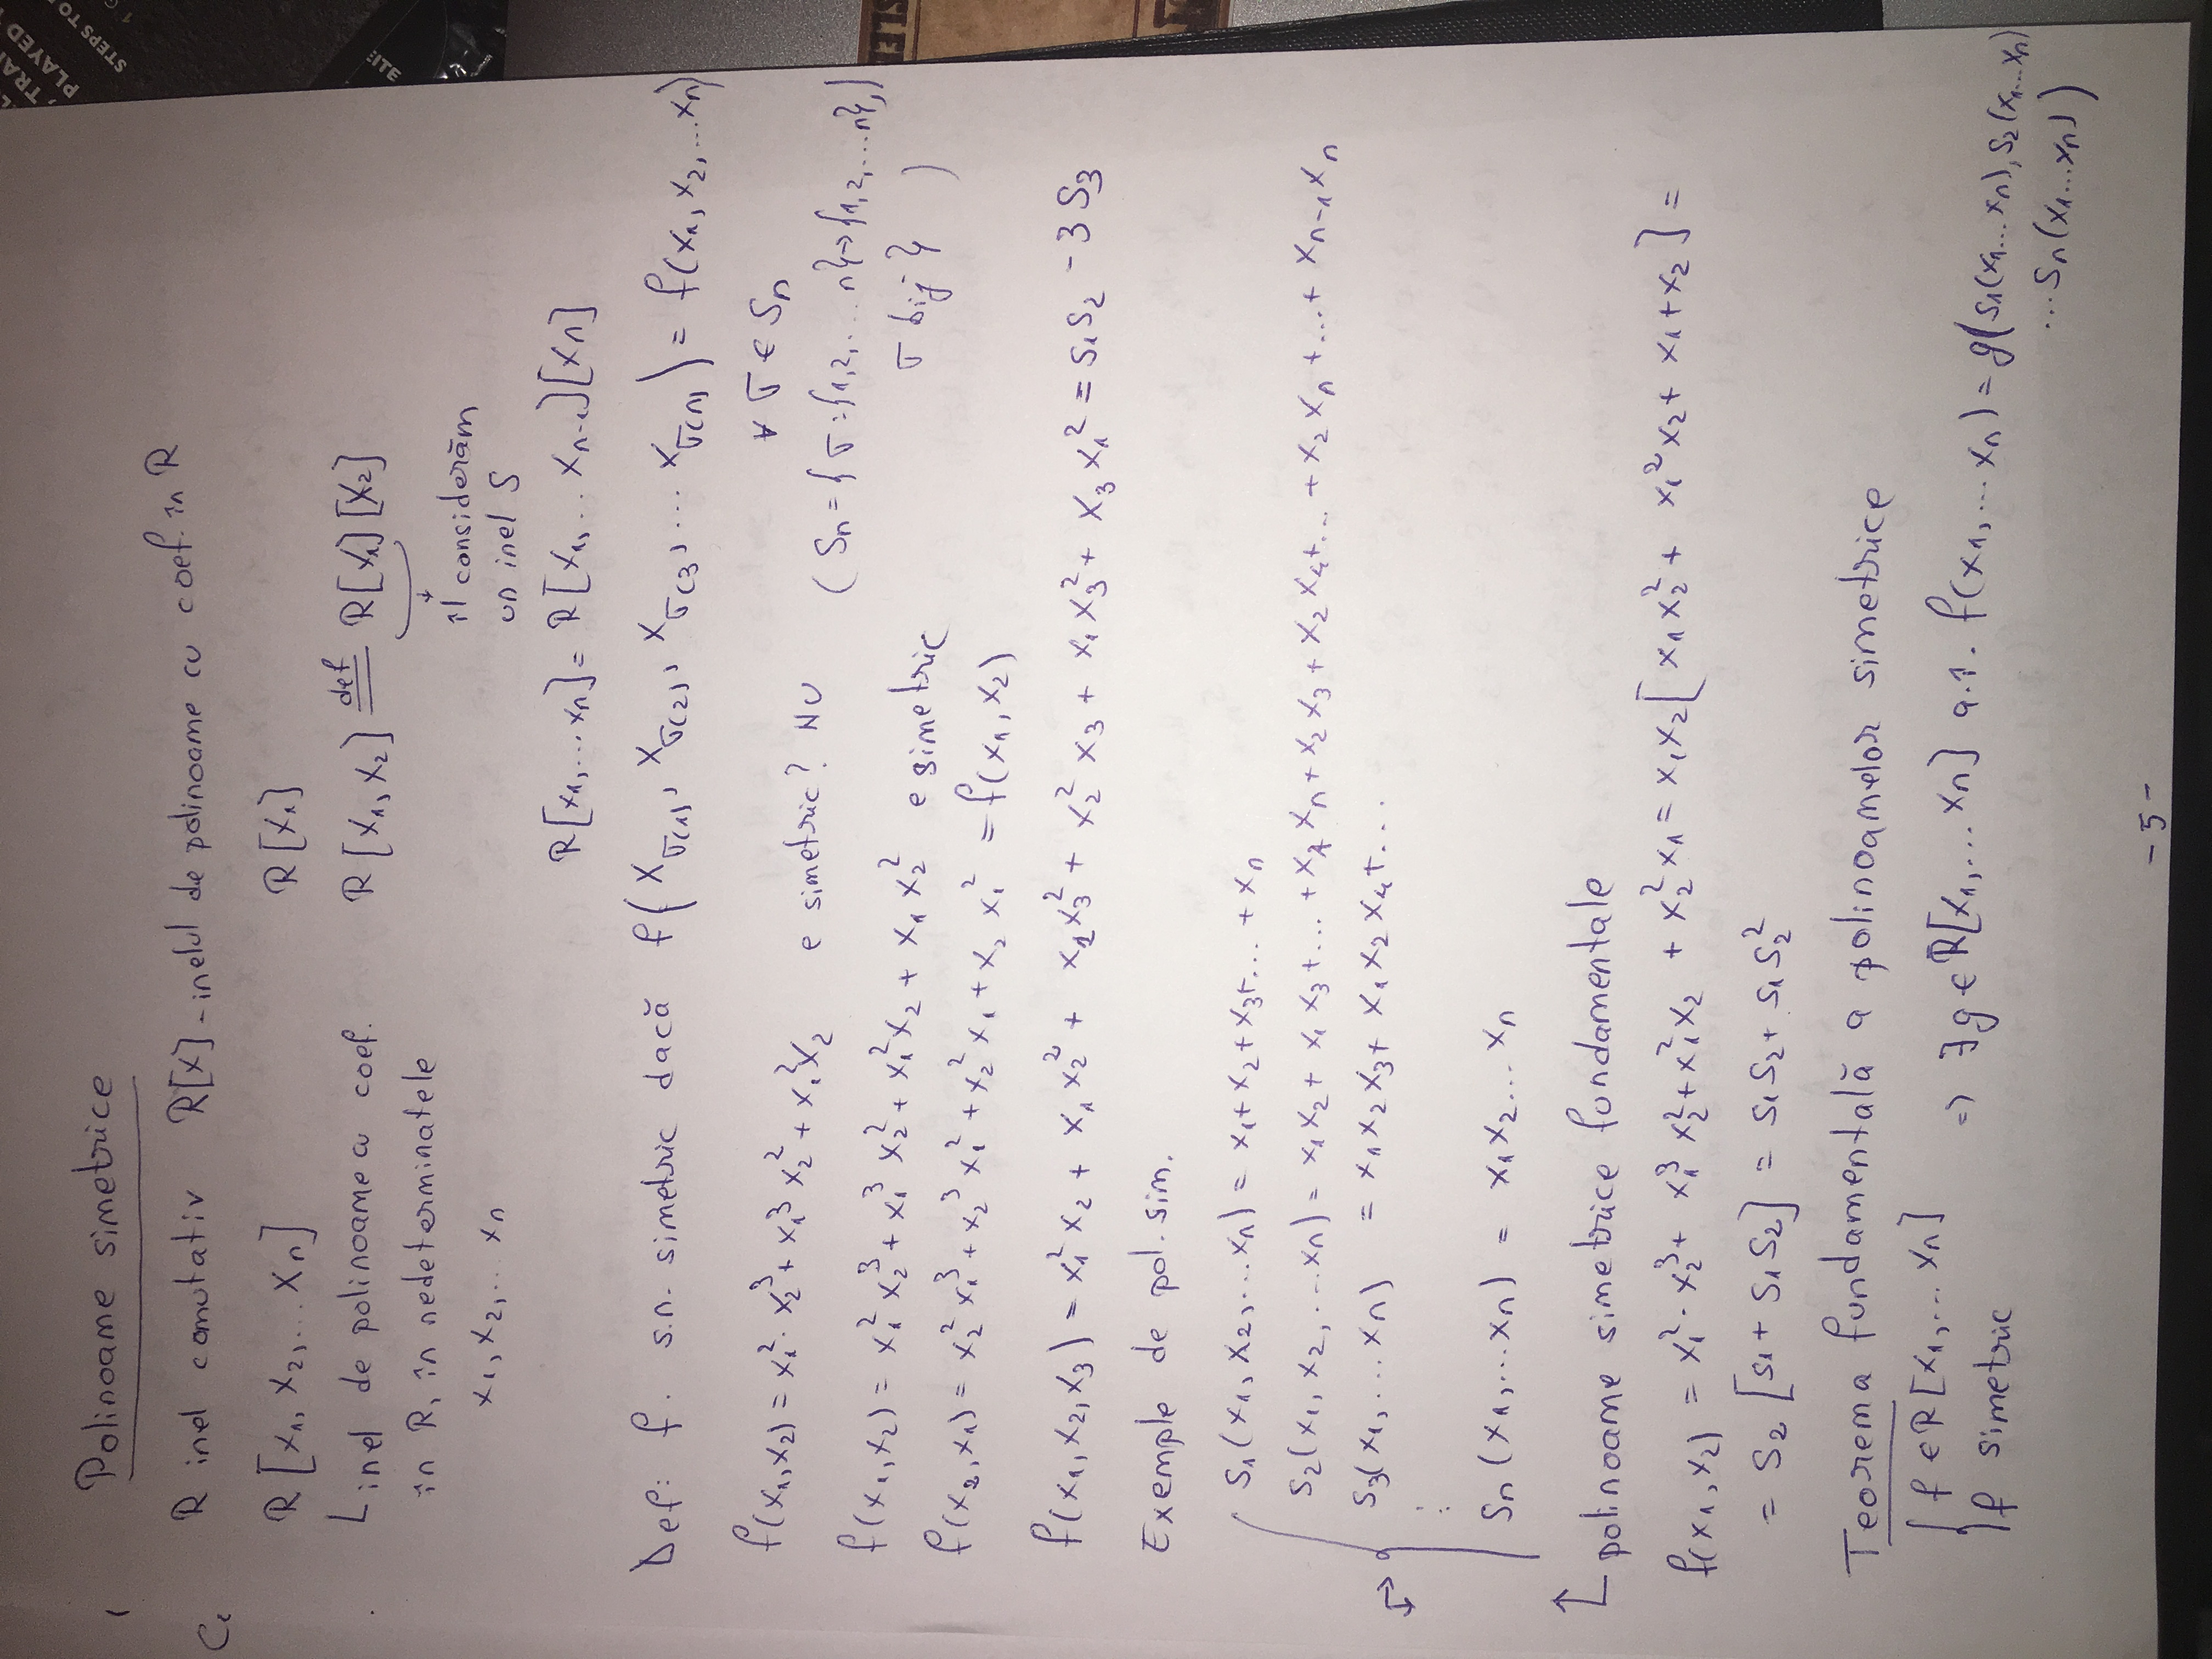 Polinoame simetrice
R inel comutativ R[X] - inelul de polinoame cu coef. în R
R[x₁, x₂, ... xₙ]
inel de polinoame cu coef.
în R, în nedeterminatele
x₁, x₂, ... xₙ
R[x₁]
R[x₁, x₂] def = R[x₁][x₂]
îl considerăm
un inel S
R[x₁, ... xₙ] = R[x₁, ... xₙ₋₁][xₙ]
Def: f. s.n. simetric dacă f(x_σ(1), x_σ(2), x_σ(3, ... x_σ(n)) = f(x₁, x₂, ... xₙ)
∀ σ ∈ Sₙ
f(x₁, x₂) = x₁² · x₂³ + x₁³ x₂² + x₁² x₂ e simetric? NU
(Sₙ = {σ: {1, 2, ... n} → {1, 2, ... n},
σ bij })
f(x₁, x₂) = x₁² x₂³ + x₁³ x₂² + x₁² x₂ + x₁ x₂² e simetric
f(x₂, x₁) = x₂² x₁³ + x₂³ x₁² + x₂² x₁ + x₂ x₁² = f(x₁, x₂)
f(x₁, x₂, x₃) = x₁² x₂ + x₁ x₂² + x₂ x₃² + x₂² x₃ + x₁ x₃² + x₃ x₁² = s₁ s₂ - 3 s₃
Exemple de pol. sim.
s₁(x₁, x₂, ... xₙ) = x₁ + x₂ + x₃ + ... + xₙ
s₂(x₁, x₂, ... xₙ) = x₁ x₂ + x₁ x₃ + ... + x₁ xₙ + x₂ x₃ + x₂ x₄ + ... + x₂ xₙ + ... + xₙ₋₁ xₙ
s₃(x₁, ... xₙ) = x₁ x₂ x₃ + x₁ x₂ x₄ + ...
⋮
sₙ(x₁, ... xₙ) = x₁ x₂ ... xₙ
polinoame simetrice fundamentale
f(x₁, x₂) = x₁² · x₂³ + x₁³ x₂² + x₁² x₂ + x₂² x₁ = x₁ x₂ [x₁ x₂² + x₁² x₂ + x₁ + x₂] =
= s₂ [s₁ + s₁ s₂] = s₁ s₂ + s₁ s₂²
Teorema fundamentală a polinoamelor simetrice
f ∈ R[x₁, ... xₙ]
f simetric
⇒ ∃ g ∈ R[x₁, ... xₙ] a.î. f(x₁, ... xₙ) = g(s₁(x₁ ... xₙ), s₂(x₁ ... xₙ)
... sₙ(x₁ ... xₙ))
- 5 -
TRA
PLAYED
STEPS TO